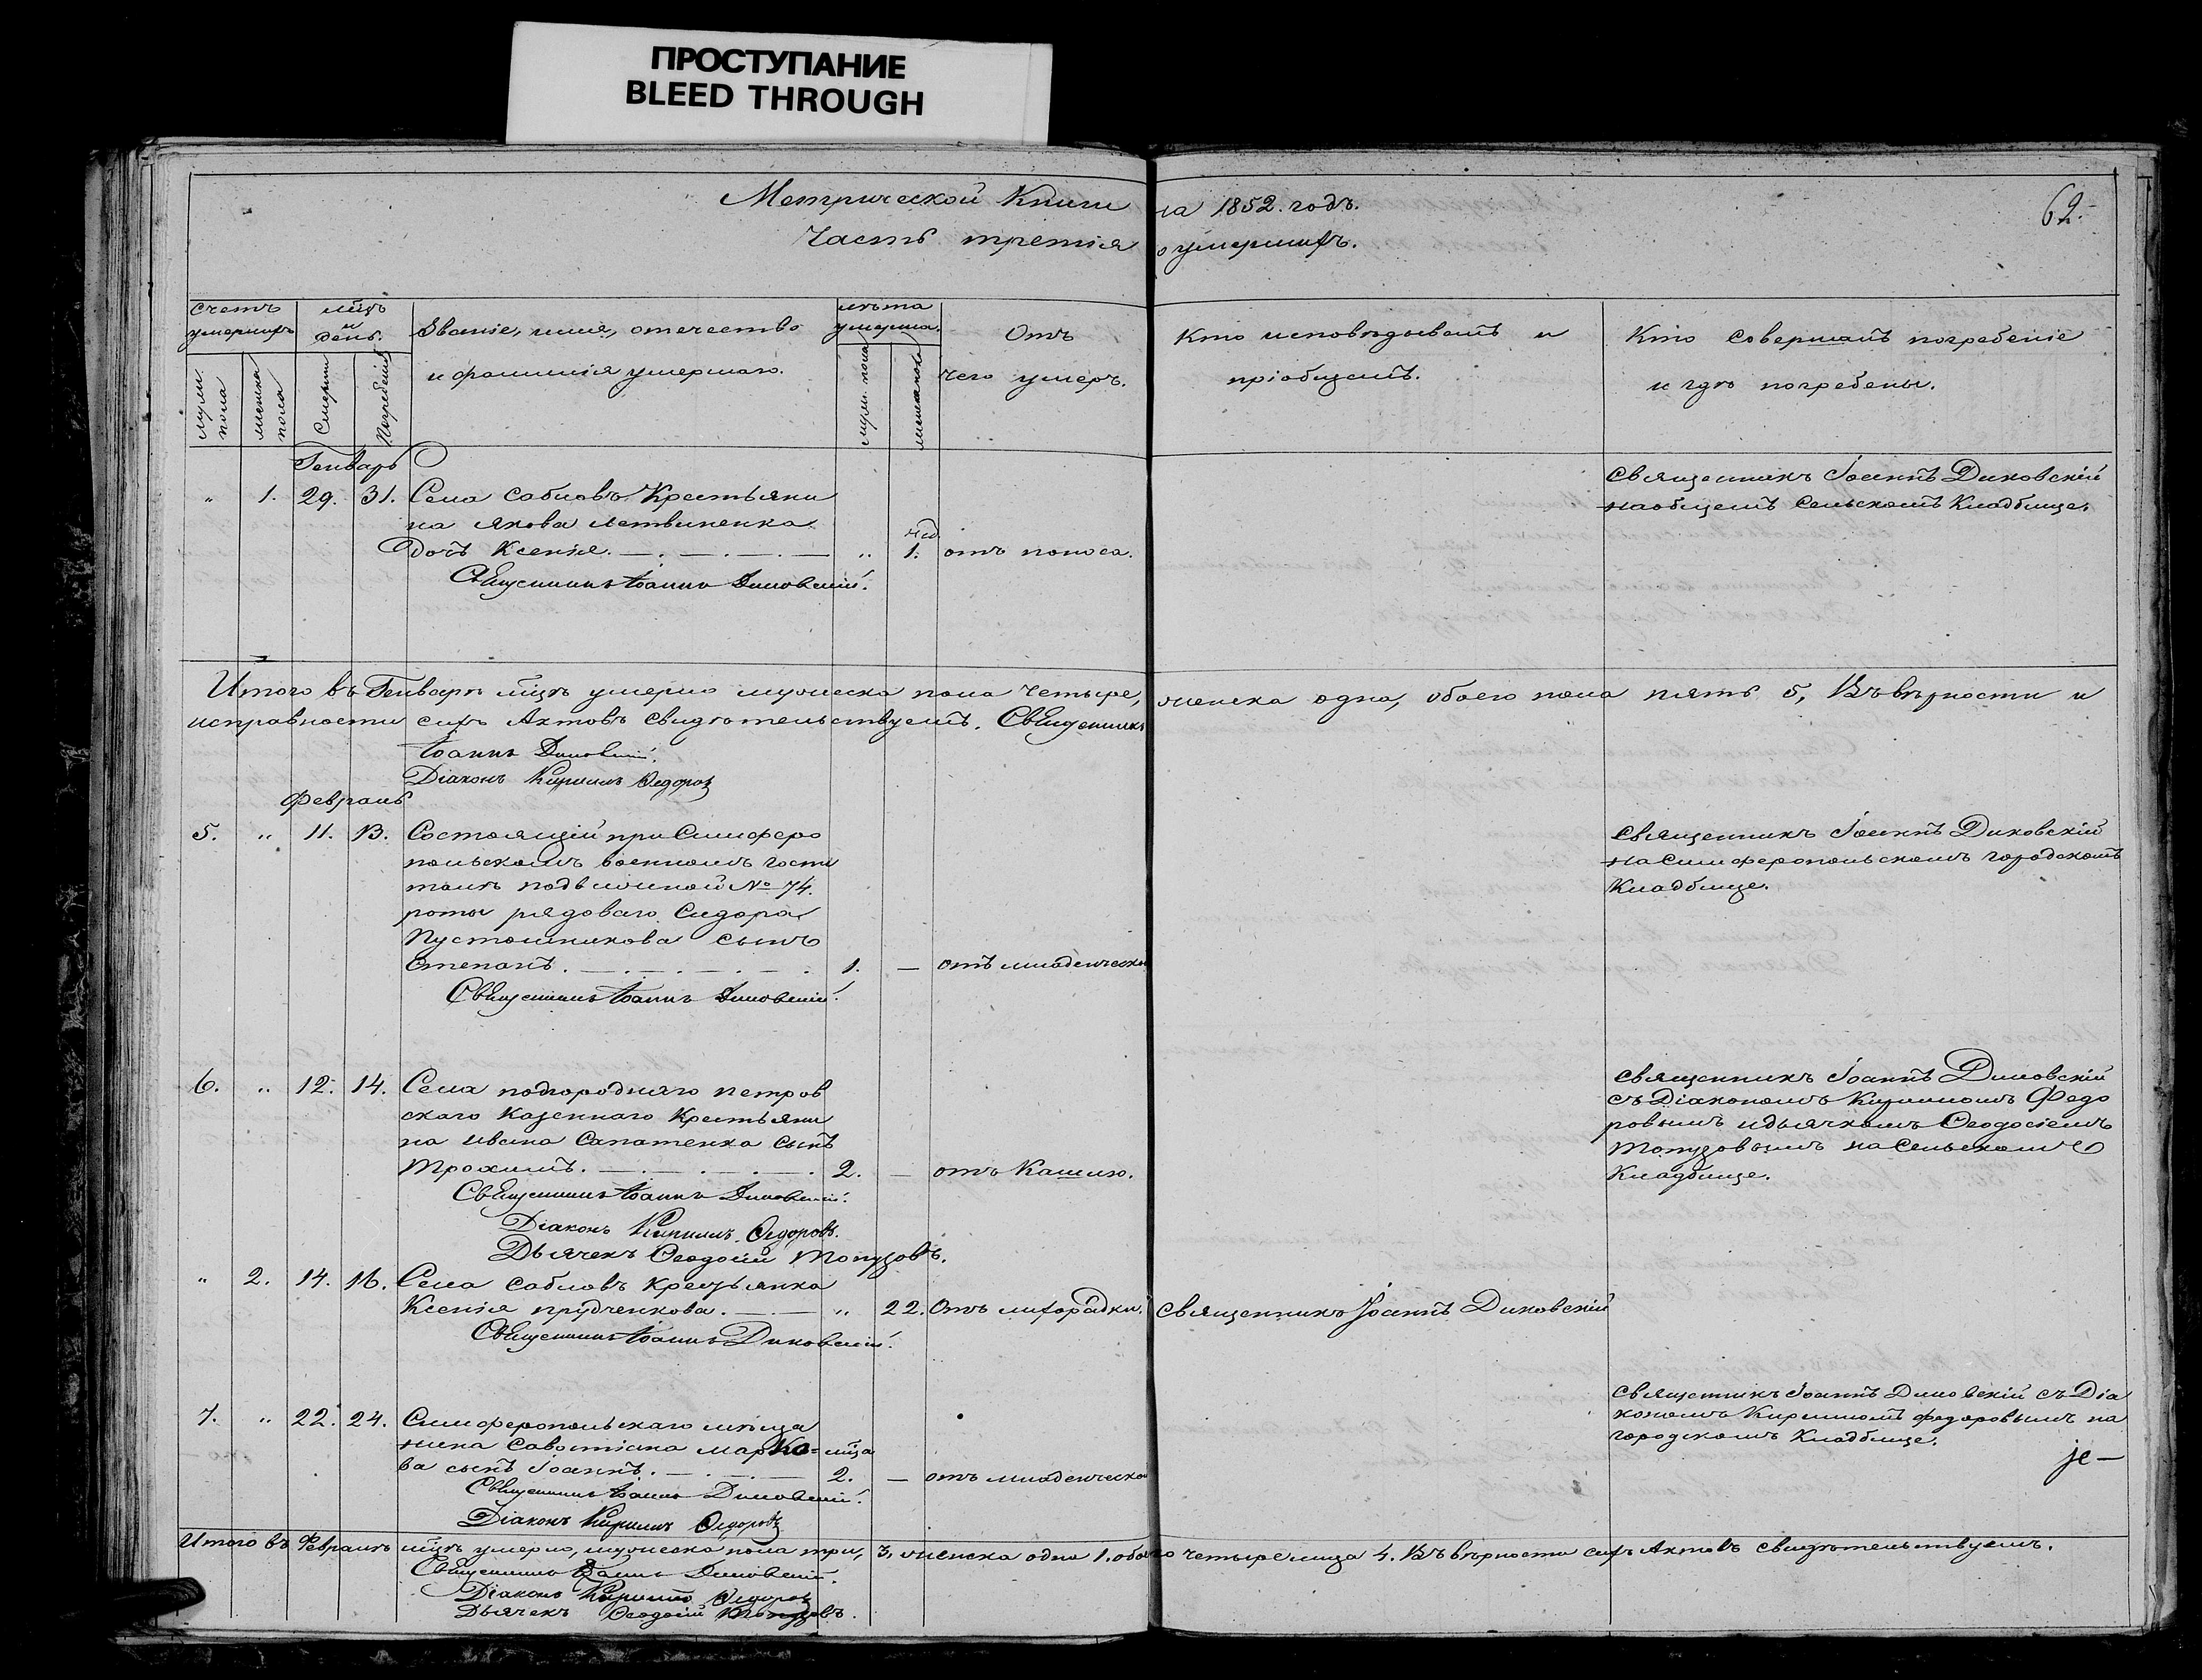 ПРОСТУПАНИЕ
BLEED THROUGH
Метрической Книги на 1852. годъ.
62.
Часть третія о умершихъ.
Счетъ умершихъ
муж. пола
женска пола
мцъ и день.
Смерти
Погребенія
Званіе, имя, отчество
и фамилія умершаго.
лѣта умерша.
муж. пола
женска пола
Отъ
чего умеръ.
Кто исповѣдывалъ и
пріобщалъ.
Кто Совершалъ погребеніе
и гдѣ погребены.
Генварь
„ 1. 29. 31. Села Сабловъ Крестьяни
на Якова Летвиненка
дочь Ксенія. „ нед. 1. отъ поноса.
Священникъ Іоаннъ Диковскій.
Священникъ Іоаннъ Диковскій
на общемъ Сельскомъ Кладбище.
Итого въ Генварѣ мцѣ умерло мужеска пола четыре, женска одна, обоего пола пять 5, Въ вѣрности и
исправности сихъ Актовъ свидѣтельствуемъ. Священникъ
Іоаннъ Диковскій.
Діаконъ Кириллъ Федоровъ
Февраль
5. „ 11. 13. Состоящій при Симферо
польскомъ военномъ госпи
талѣ подвижной № 74.
роты рядоваго Сидора
Пустошникова сынъ
Степанъ. 1. — отъ младенческой
Священникъ Іоаннъ Диковскій.
Священникъ Іоаннъ Диковскій
на Симферопольскомъ городскомъ
Кладбище.
6. „ 12. 14. Села подгороднаго петров
скаго Казеннаго Крестьяни
на Ивана Сапатенка сынъ
Трохимъ. 2. — отъ Кашлю.
Священникъ Іоаннъ Диковскій.
Діаконъ Кириллъ Федоровъ.
Дьячекъ Феодосій Топузовъ.
Священникъ Іоаннъ Диковскій
съ Діакономъ Кирилломъ Федо
ровымъ и дьячкомъ Феодосіемъ
Топузовымъ на Сельскомъ
Кладбище.
„ 2. 14. 16. Села Сабловъ крестьянка
Ксенія прудченкова. „ 22. Отъ лихорадки. Священникъ Іоаннъ Диковскій
Священникъ Іоаннъ Диковскій.
7. „ 22. 24. Симферопольскаго мѣща
нина Савостіана Марко=
ва сынъ Іоаннъ. мца 2. — отъ младенческой
Священникъ Іоаннъ Диковскій.
Діаконъ Кириллъ Федоровъ
Священникъ Іоаннъ Диковскій съ Діа
кономъ Кирилломъ Федоровымъ на
городскомъ Кладбище.
Итого въ Февралѣ мцѣ умерло, мужеска пола три, 3, женска одна 1. обоего четыре лица 4. Въ вѣрности сихъ Актовъ свидѣтельствуемъ.
Священникъ Іоаннъ Диковскій.
Діаконъ Кириллъ Федоровъ
Дьячекъ Феодосій Топузовъ.